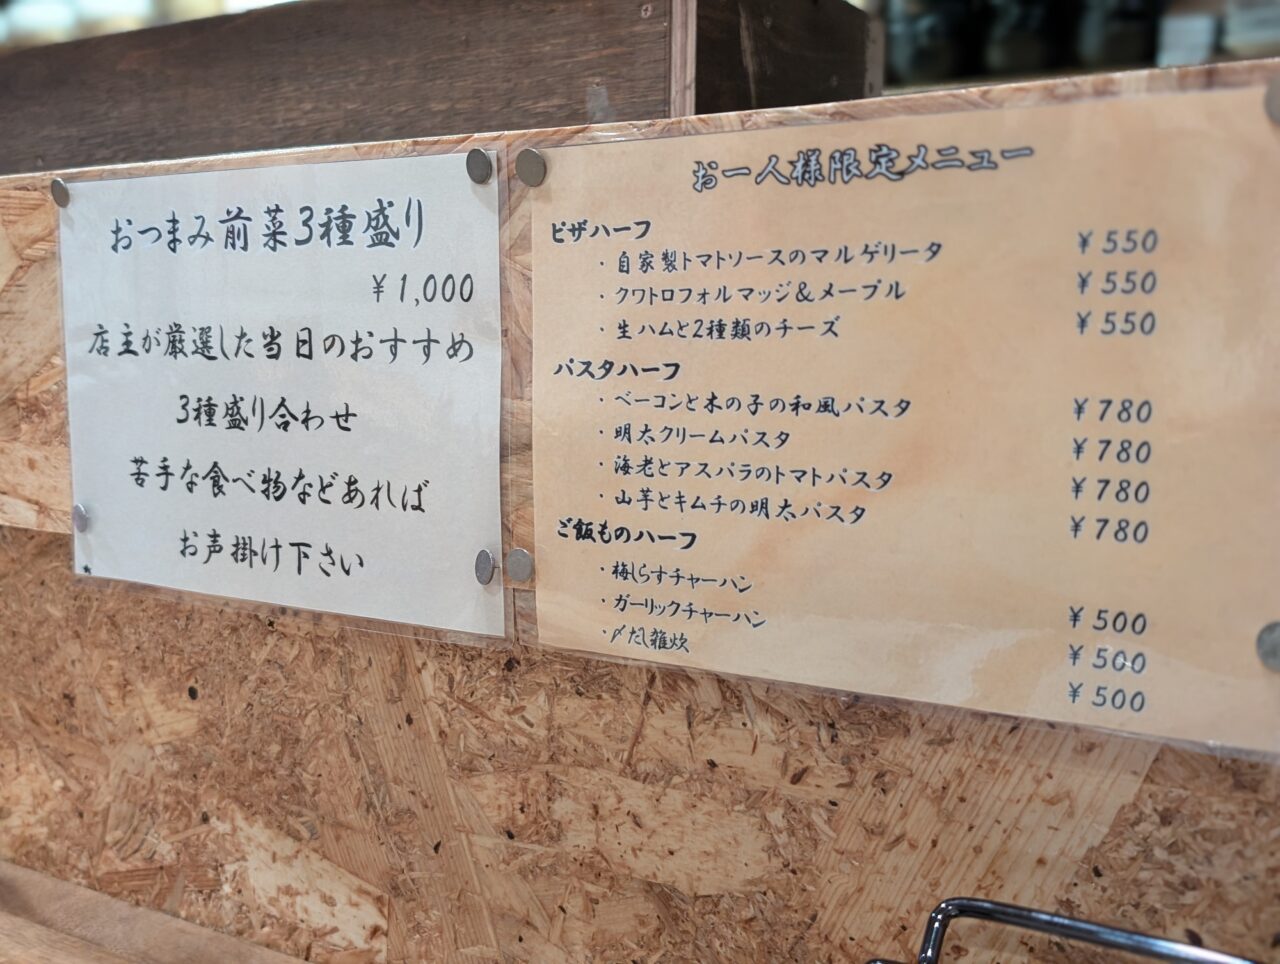 おつまみ前菜3種盛り
¥1,000
店主が厳選した当日のおすすめ
3種盛り合わせ
苦手な食べ物などあれば
お声掛け下さい
お一人様限定メニュー
ピザハーフ
・自家製トマトソースのマルゲリータ ¥550
・クワトロフォルマッジ&メープル ¥550
・生ハムと2種類のチーズ ¥550
パスタハーフ
・ベーコンと木の子の和風パスタ ¥780
・明太クリームパスタ ¥780
・海老とアスパラのトマトパスタ ¥780
・山芋とキムチの明太パスタ ¥780
ご飯ものハーフ
・梅しらすチャーハン ¥500
・ガーリックチャーハン ¥500
・〆だし雑炊 ¥500